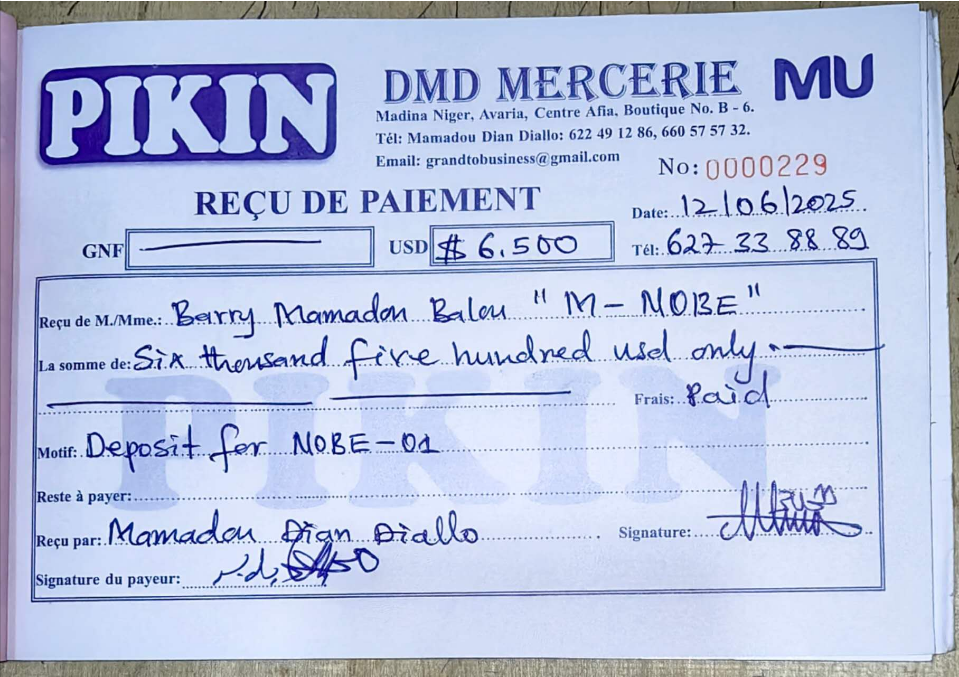 PIKIN
DMD MERCERIE
MU
Madina Niger, Avaria, Centre Afia, Boutique No. B - 6.
Tél: Mamadou Dian Diallo: 622 49 12 86, 660 57 57 32.
Email: grandtobusiness@gmail.com
No: 0000229
REÇU DE PAIEMENT
Date: 12/06/2025
GNF
USD $ 6.500
Tél: 627 33 88 89
Reçu de M./Mme.: Barry Mamadou Balou " M - NOBE "
La somme de: Six thousand five hundred usd only.
Frais: Paid
PIKIN
Motif: Deposit for NOBE-01
Reste à payer:
Reçu par: Mamadou Dian Diallo
Signature:
Signature du payeur: